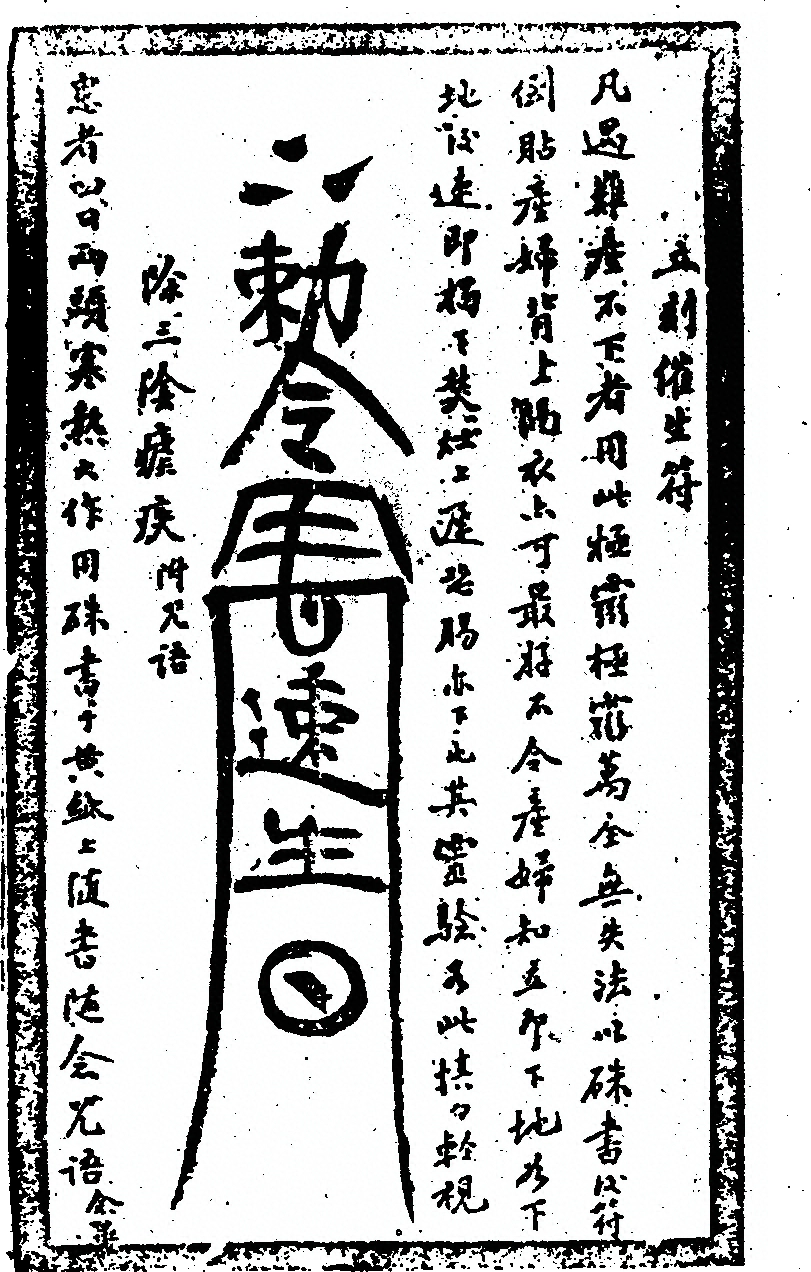 立刻催生符
凡遇難產不下者用此極靈極靈萬全無失法以硃書後符
倒貼產婦背上隔衣亦可最好不令產婦知立即下地如下
地後速即揭下焚灶上遲恐腸亦下也其靈驗如此慎勿輕視
敕令 速生
除三陰瘧疾 附咒語
患者出日兩頭寒熱大作用硃書于黃紙上隨書隨念咒語